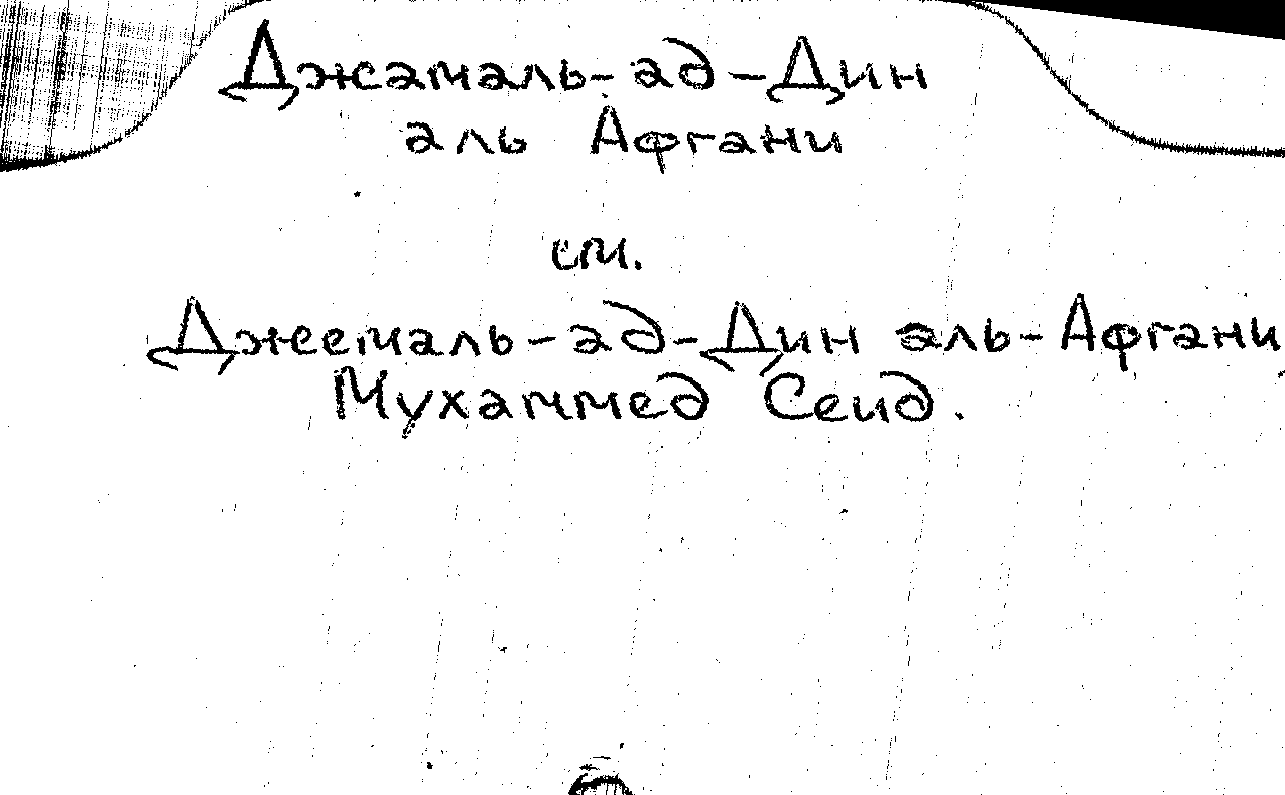 Джамаль-ад-Дин
аль Афгани
см.
Джемаль-ад-Дин аль-Афгани,
Мухаммед Сеид.